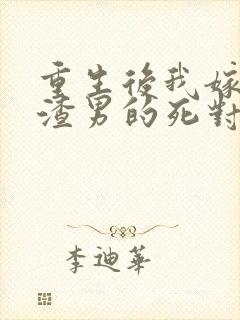 重生後我嫁
渣男的死對
李迪華